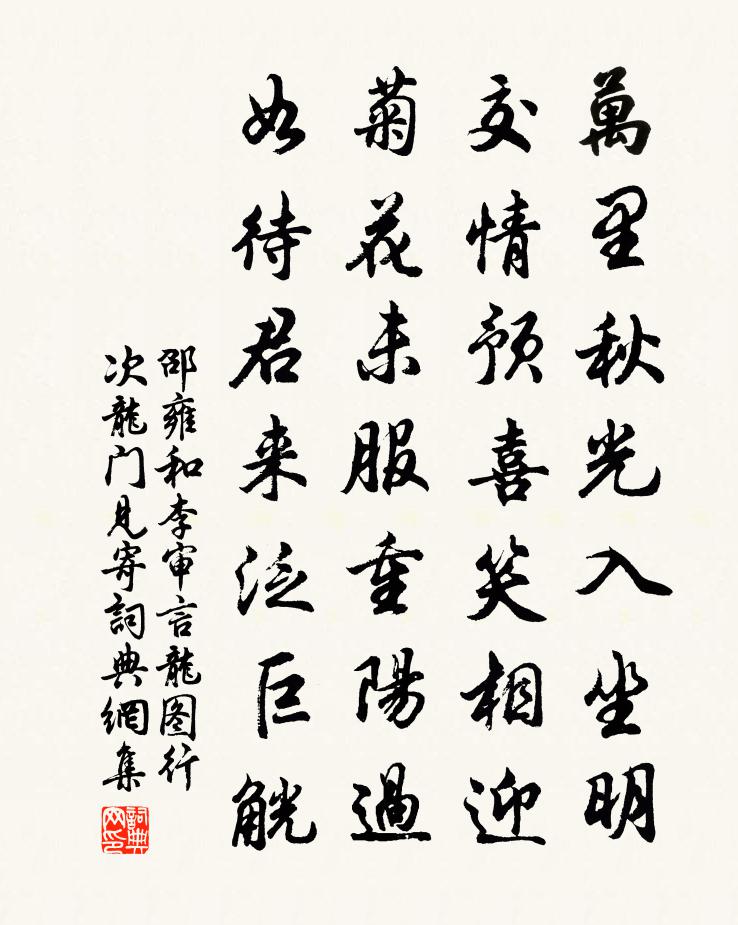 萬里秋光入坐明
交情預喜笑相迎
菊花未服重陽過
如待君来泛巨觥
邵雍和李审言龍图行
次龍门見寄詞典網集
詞典
网印